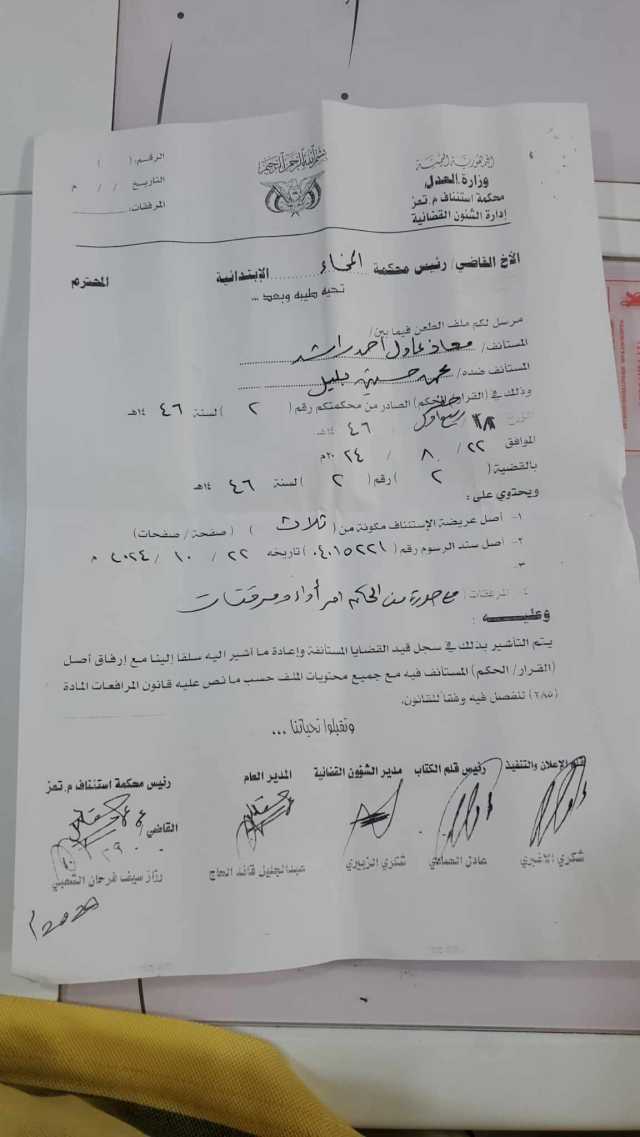 الجمهورية اليمنية
وزارة العدل
محكمة استئناف م. تعز
إدارة الشئون القضائية
بسم الله الرحمن الرحيم
الرقم: (        )
التاريخ    /    /    م
المرفقات:
الأخ القاضي/ رئيس محكمة المخاء الإبتدائية المحترم
تحيه طيبه وبعد ...
مرسل لكم ملف الطعن فيما بين/
المستأنف/ معاذ عادل احمد راشد
المستأنف ضده/ محمد حسن بليل
وذلك في (القرار/الحكم) الصادر من محكمتكم رقم ( ٢ ) لسنة ٤٦ ١٤هـ
١٨ ربيع اول ٤٦ ١٤هـ
الموافق ٢٢ / ٨ / ٢٤ ٢٠م
بالقضية ( ٢ ) رقم ( ٢ ) لسنة ٤٦ ١٤هـ
ويحتوي على:
١- أصل عريضة الإستئناف مكونة من ( ثلاث ) (صفحة/ صفحات)
٢- أصل سند الرسوم رقم (٠٤٠١٥٢٢١) تاريخه ٢٢ / ١٠ / ٢٠٢٤ م
٣-
٤- المرفقات: مع صورة من الحكم امر أداء ومرفقات
وعليـــــه:
يتم التأشير بذلك في سجل قيد القضايا المستأنفة وإعادة ما أشير اليه سلفا إلينا مع إرفاق أصل
(القرار/ الحكم) المستأنف فيه مع جميع محتويات الملف حسب ما نص عليه قانون المرافعات المادة
(٢٨٥) لنفصل فيه وفقا للقانون.
وتقبلوا تحياتنا ...
قلم الإعلان والتنفيذ رئيس قلم الكتاب مدير الشؤون القضائية المدير العام رئيس محكمة استئناف م. تعز
القاضي
شكري الاغبري عادل الصماعي شكري الزبيري عبدالجليل قائد الحاج رزاز سيف فرحان الشعبي